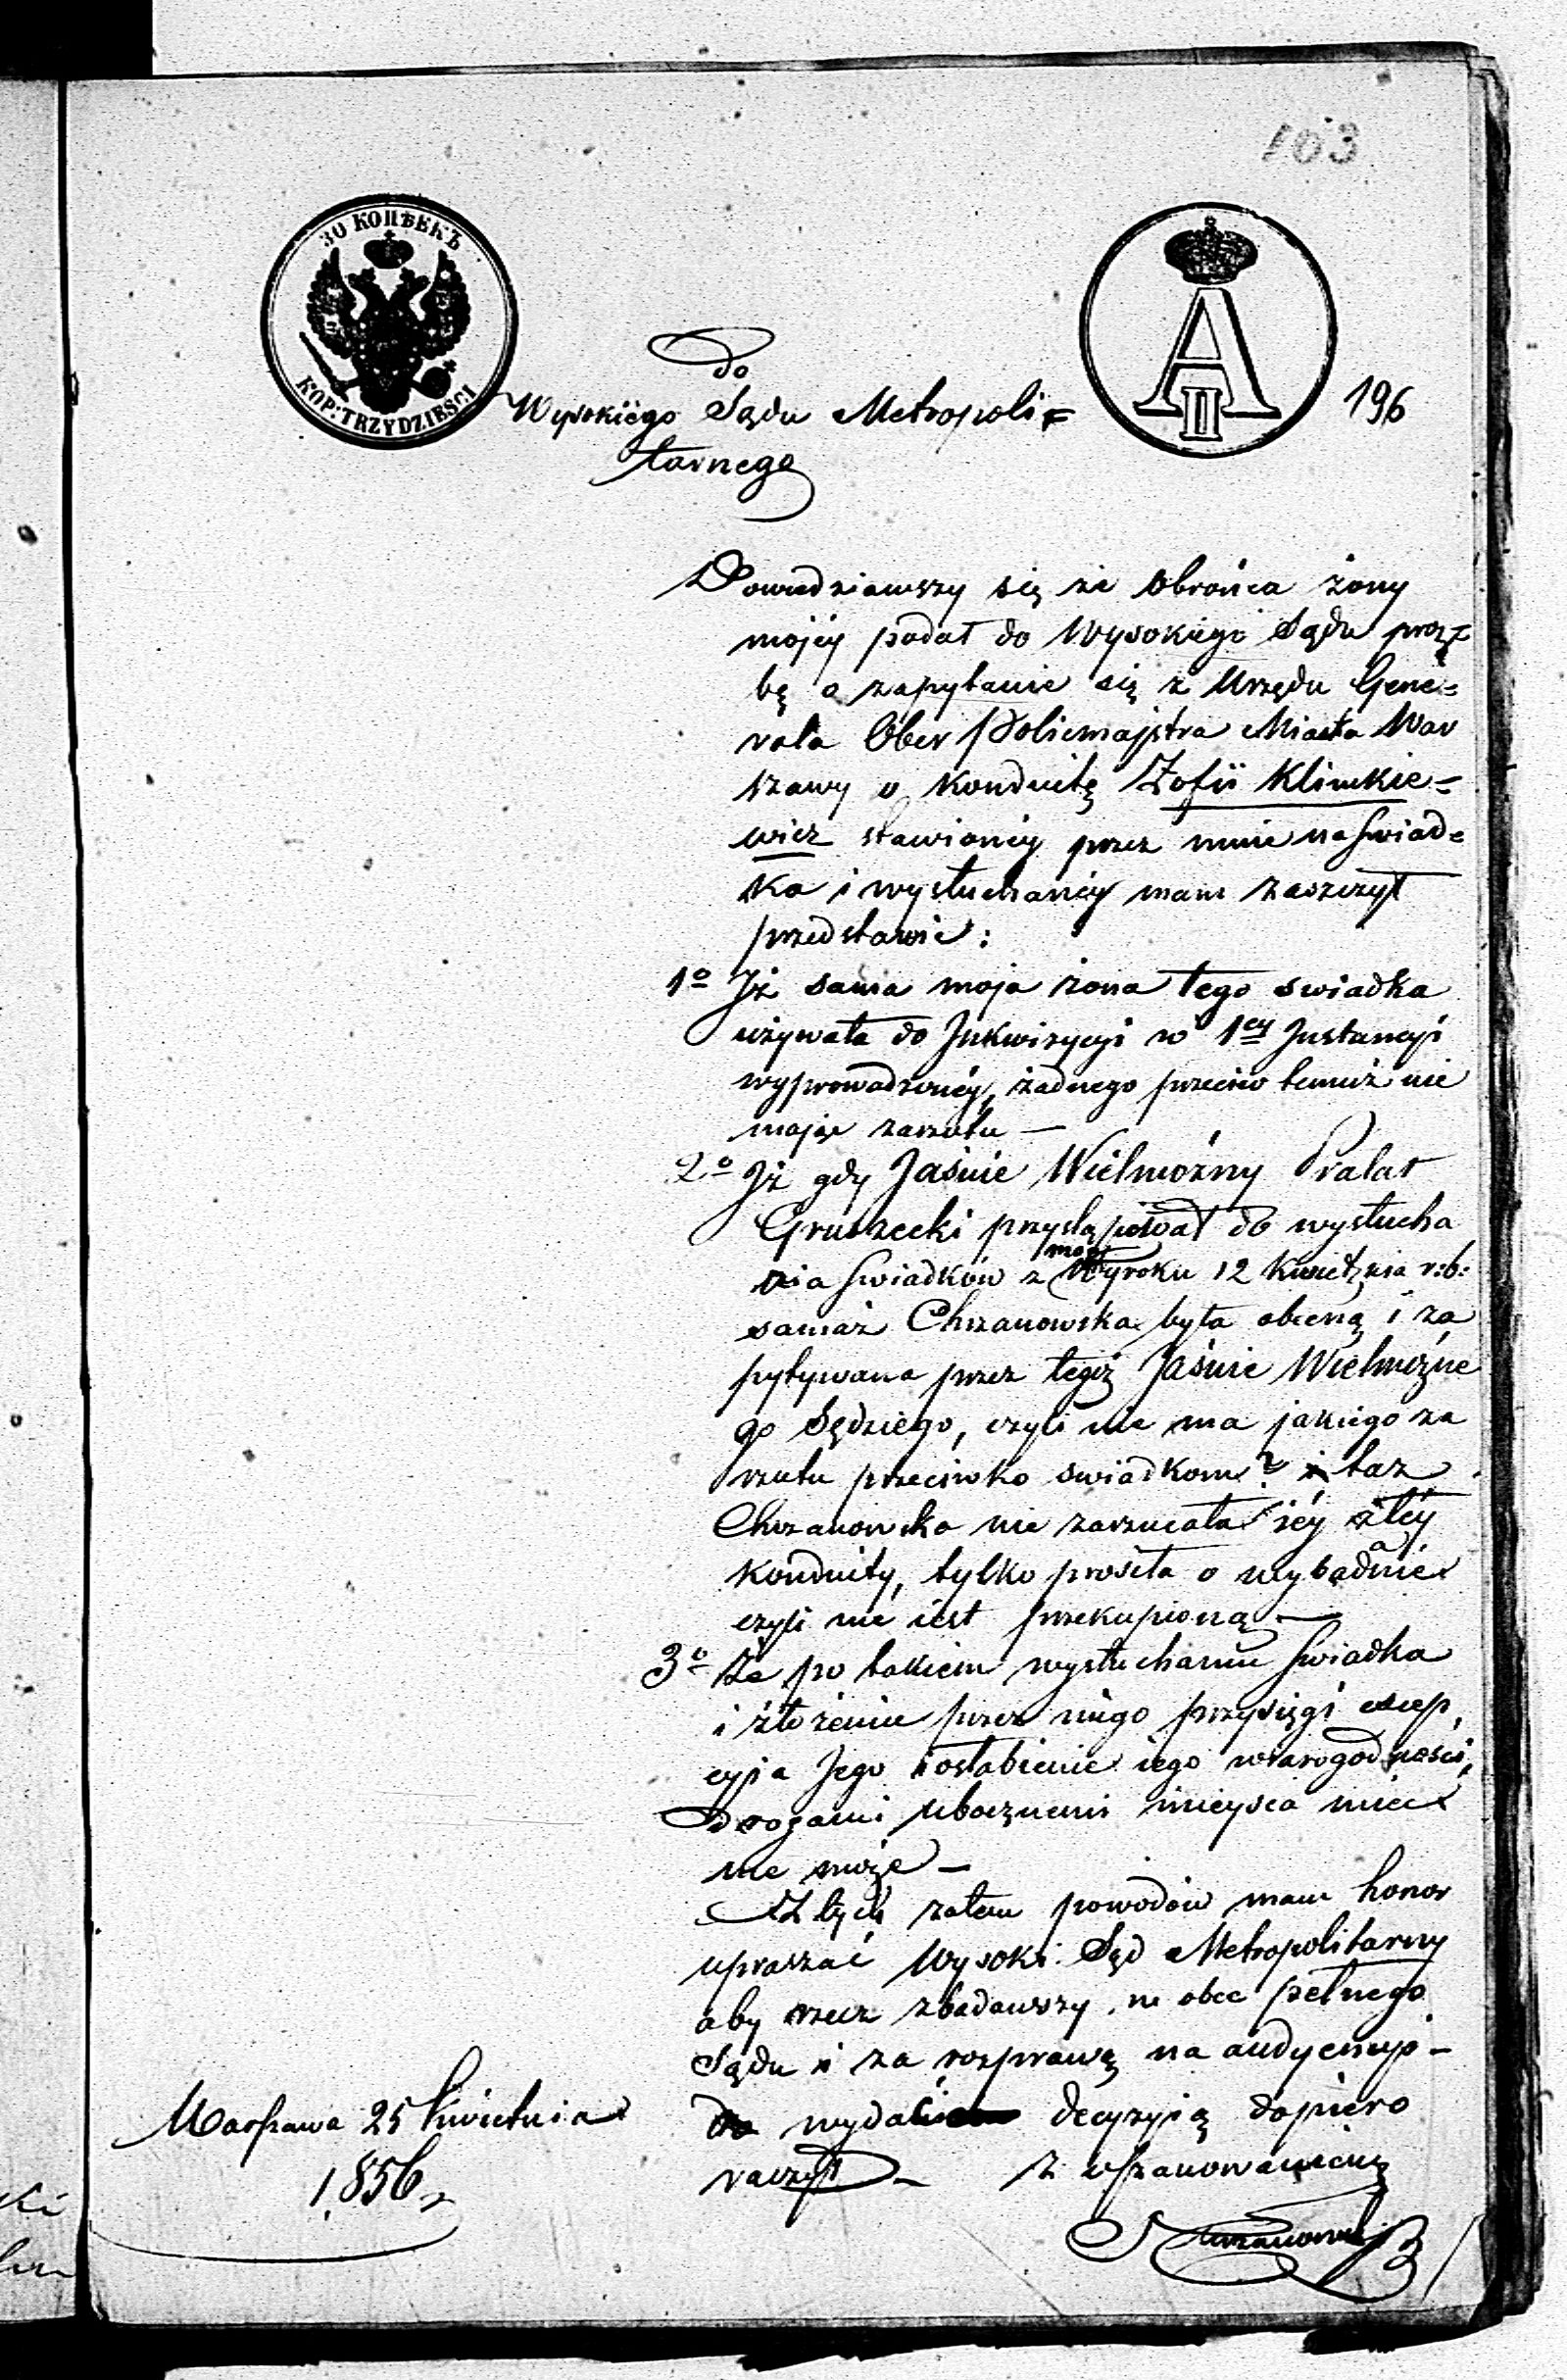 103
30 КОПѢЕКЪ
KOP: TRZYDZIEŚCI
A II
196
do
Wysokiego Sądu Metropoli=
tarnego
Dowiedziawszy się że Obrońca żony
mojéy podał do Wysokiego Sądu proź=
bę o zapytanie się z Urzędu Gene=
rała Ober Policmajstra Miasta War
szawy o konduitę Zofii Klimkie=
wicz stawionéy przez mnie na świad=
ka i wysłuchanéy mam zaszczyt
przedstawić:
1o Iż sama moja żona tego swiadka
używała do Inkwizycyi w 1éy Instancyi
wyprowadzonéy, żadnego przeciw temuż nie
mając zarzutu —
2o Iż gdy Jaśnie Wielmożny Prałat
Gruszecki przystępował do wysłucha
nia świadków z mocy Wyroku 12 Kwietnia r: b:
samaż Chrzanowska była obecną i za
pytywana przez tegoż Jaśnie Wielmożne
go Sędziego, czyli nie ma jakiego za
rzutu przeciwko swiadkom? i taż
Chrzanowska nie zarzucała jéy złéy
konduity, tylko prosiła o wybadanie
czyli nie iest przekupioną —
3o Że po takiem wysłuchaniu świadka
i złożeniu przez niego przysięgi excep
cyja Jego i osłabienie iego wiarogodności,
drogami ubocznemi mieysca mieć
nie może —
Z tych zatem powodów mam honor
upraszać Wysoki Sąd Metropolitarny
aby rzecz zbadawszy, w obec pełnego
Sądu i za rozprawą na audyencyi —
wydać decyzyią dopiero
raczył — Z uszanowaniem
Chrzanowski
Warszawa 25 Kwietnia
1856 r